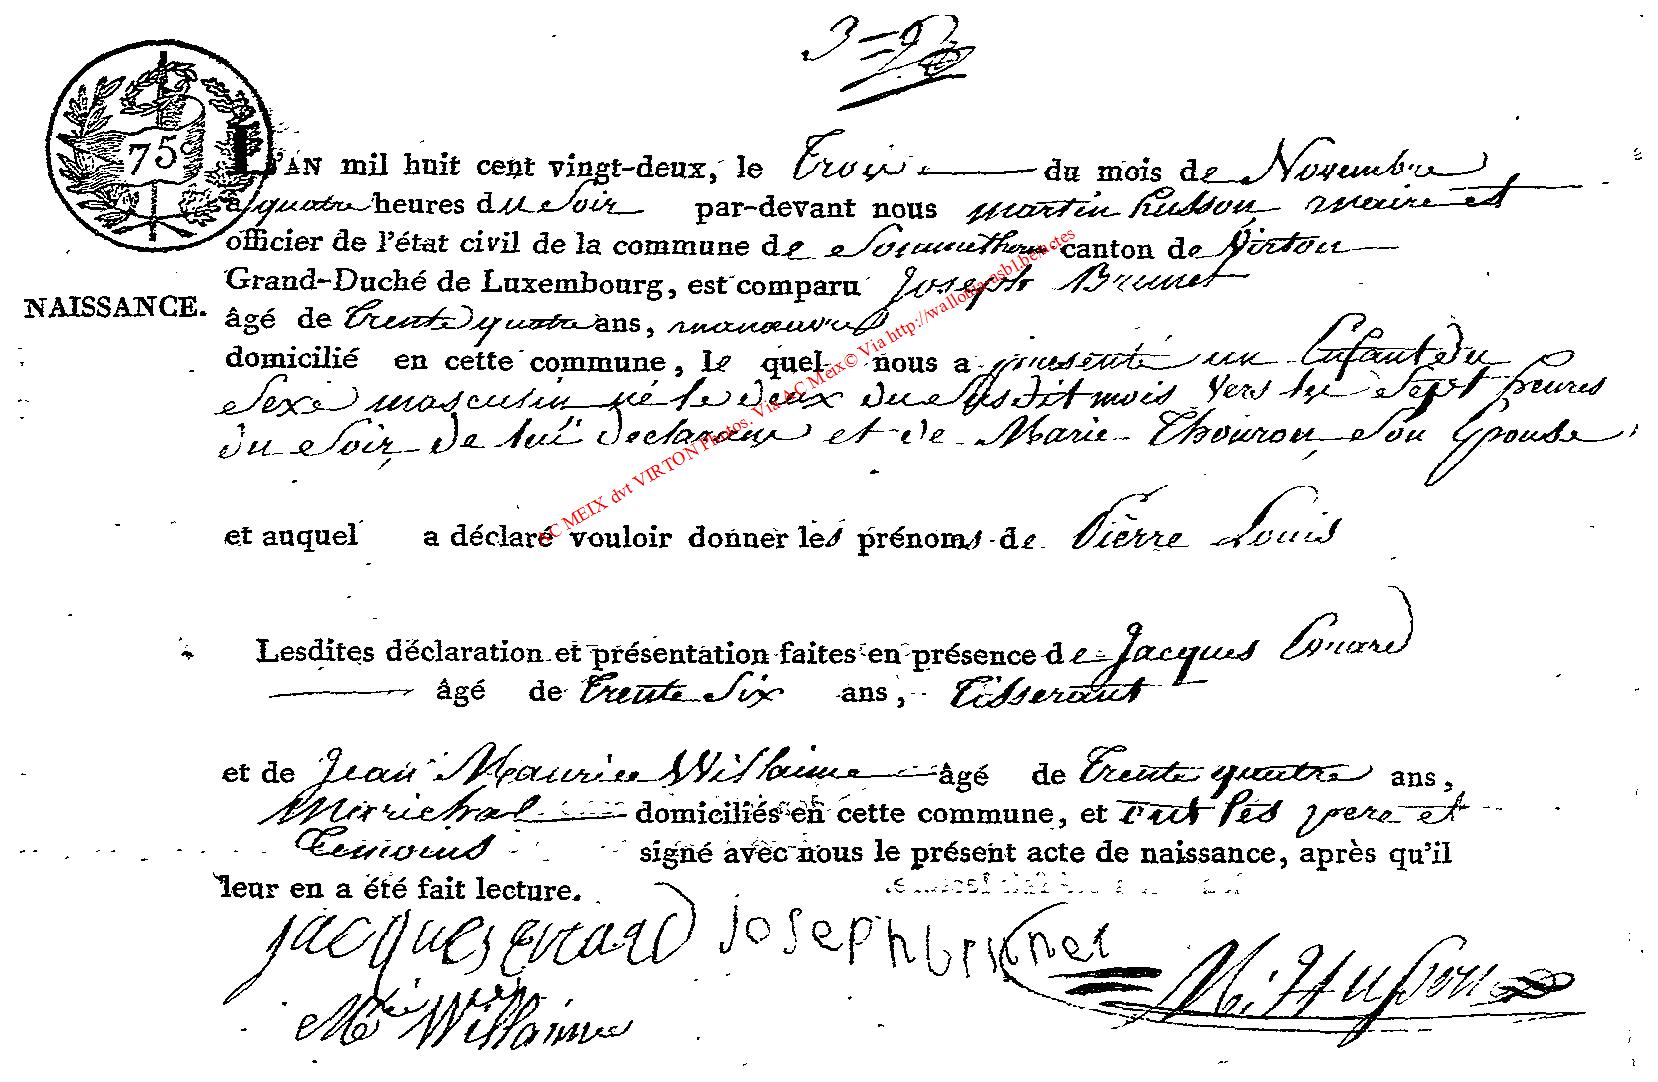 75c
L'AN mil huit cent vingt-deux, le Trois du mois de Novembre
a quatre heures du Soir par-devant nous martin husson maire et
officier de l'état civil de la commune de Sommethonne canton de Virton
Grand-Duché de Luxembourg, est comparu Joseph Brunet
NAISSANCE.
âgé de trente quatre ans, manœuvre
domicilié en cette commune, le quel nous a presenté un Enfant du
Sexe masculin né le deux du Susdit mois vers les Sept heures
du Soir, de lui declarant et de Marie Thouron, Son Epouse
et auquel a déclaré vouloir donner les prénoms de Pierre Louis
Lesdites déclaration et présentation faites en présence de Jacques Evrard
âgé de trente Six ans, Tisserant
et de Jean Maurice Willaime âgé de trente quatre ans,
Marichal domiciliés en cette commune, et ont les pere et
temoins signé avec nous le présent acte de naissance, après qu'il
leur en a été fait lecture.
jacques evrard joseph brunet
M. Husson
Mce Willaime
AC MEIX dvt VIRTON Photos. Via AC Meix© Via http://wallonia-asbl.be/actes